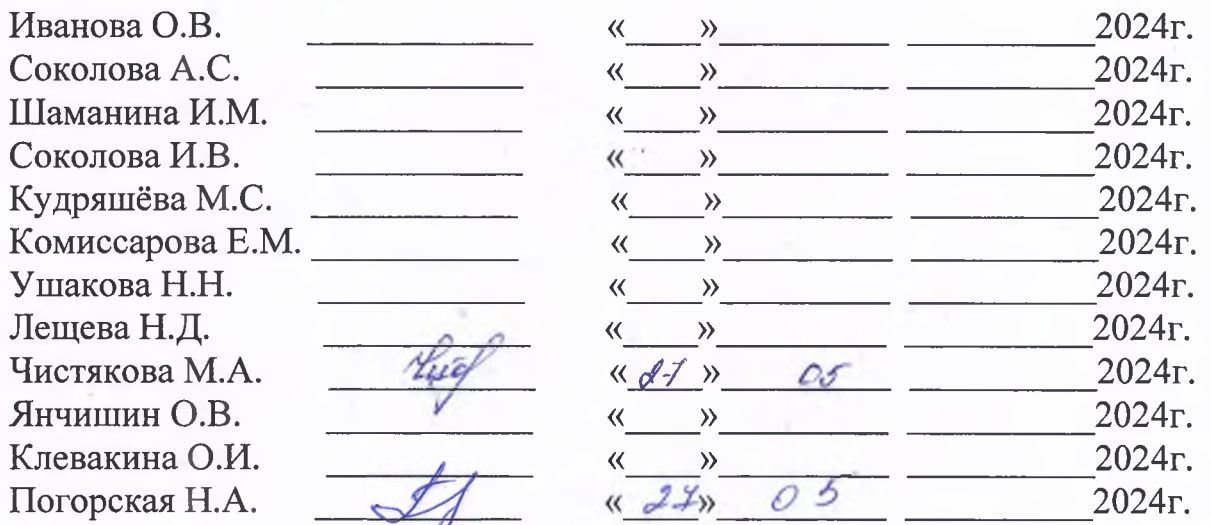 Иванова О.В. «____»__________ __________2024г.
Соколова А.С. «____»__________ __________2024г.
Шаманина И.М. «____»__________ __________2024г.
Соколова И.В. «____»__________ __________2024г.
Кудряшёва М.С. «____»__________ __________2024г.
Комиссарова Е.М. «____»__________ __________2024г.
Ушакова Н.Н. «____»__________ __________2024г.
Лещева Н.Д. «____»__________ __________2024г.
Чистякова М.А. «27» 05 __________2024г.
Янчишин О.В. «____»__________ __________2024г.
Клевакина О.И. «____»__________ __________2024г.
Погорская Н.А. «27» 05 __________2024г.